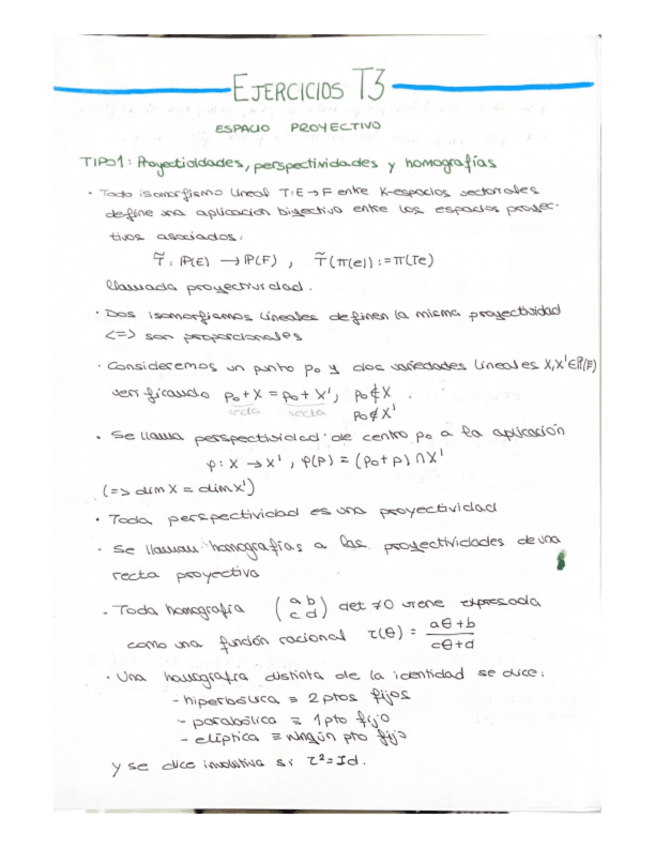 EJERCICIOS T3
ESPACIO PROYECTIVO
TIPO1: Proyectividades, perspectividades y homografías
· Todo isomorfismo lineal T:E→F entre K-espacios vectoriales
define una aplicación biyectiva entre los espacios proyec-
tivos asociados,
T̃: P(E) → P(F) , T̃(π(e)):=π(Te)
llamada proyectividad.
· Dos isomorfismos lineales definen la misma proyectividad
<=> son proporcionales
· Consideremos un punto p₀ y dos variedades lineales X,X'∈P(E)
verificando p₀+X = p₀+X', p₀∉X
recta recta p₀∉X'
· Se llama perspectividad de centro p₀ a la aplicación
φ: X → X' , φ(p) = (p₀+p) ∩ X'
(=> dim X = dim X')
· Toda perspectividad es una proyectividad
· Se llaman homografías a las proyectividades de una
recta proyectiva
· Toda homografía (a b
c d) det ≠0 viene expresada
como una función racional τ(θ) = aθ+b
cθ+d
· Una homografía distinta de la identidad se dice:
- hiperbólica ≡ 2 ptos fijos
- parabólica ≡ 1 pto fijo
- elíptica ≡ ningún pto fijo
y se dice involutiva si τ²=Id.